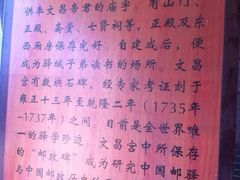 供奉文昌帝君的庙宇。有山门、
正殿、斋堂、七贤祠等，正殿及东
西厢房保存完好。自建成后，便
成为驿城子弟读书的场所。文昌
宫有数块石碑，经专家考证刻于
雍正十三年至乾隆二年（1735年
-1737年）之间，目前是全世界唯
一的驿学珍迹。文昌宫中所保存
的“邮政碑”成为研究中国邮驿
与中国邮政历史的